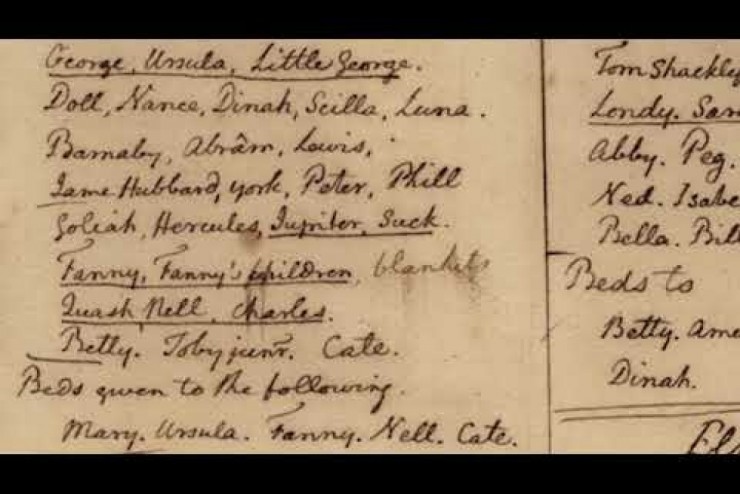 George, Ursula, Little George.
Doll, Nance, Dinah, Scilla, Luna.
Barnaby, Abrâm, Lewis,
Jame Hubbard, york, Peter, Phill
Goliah, Hercules, Jupiter, Suck.
Fanny, Fanny's children, blankets
Quash, Nell, Charles.
Betty. Toby junr. Cate.
Beds given to the following.
Mary. Ursula. Fanny. Nell. Cate.
Tom Shackl
Londy.
Abby. Peg.
Ned. Isabe
Bella. Bill
Beds to
Betty.
Dinah.